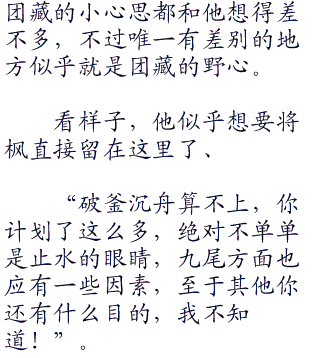 团藏的小心思都和他想得差
不多，不过唯一有差别的地
方似乎就是团藏的野心。
看样子，他似乎想要将
枫直接留在这里了、
“破釜沉舟算不上，你
计划了这么多，绝对不单单
是止水的眼睛，九尾方面也
应有一些因素，至于其他你
还有什么目的，我不知
道！”。